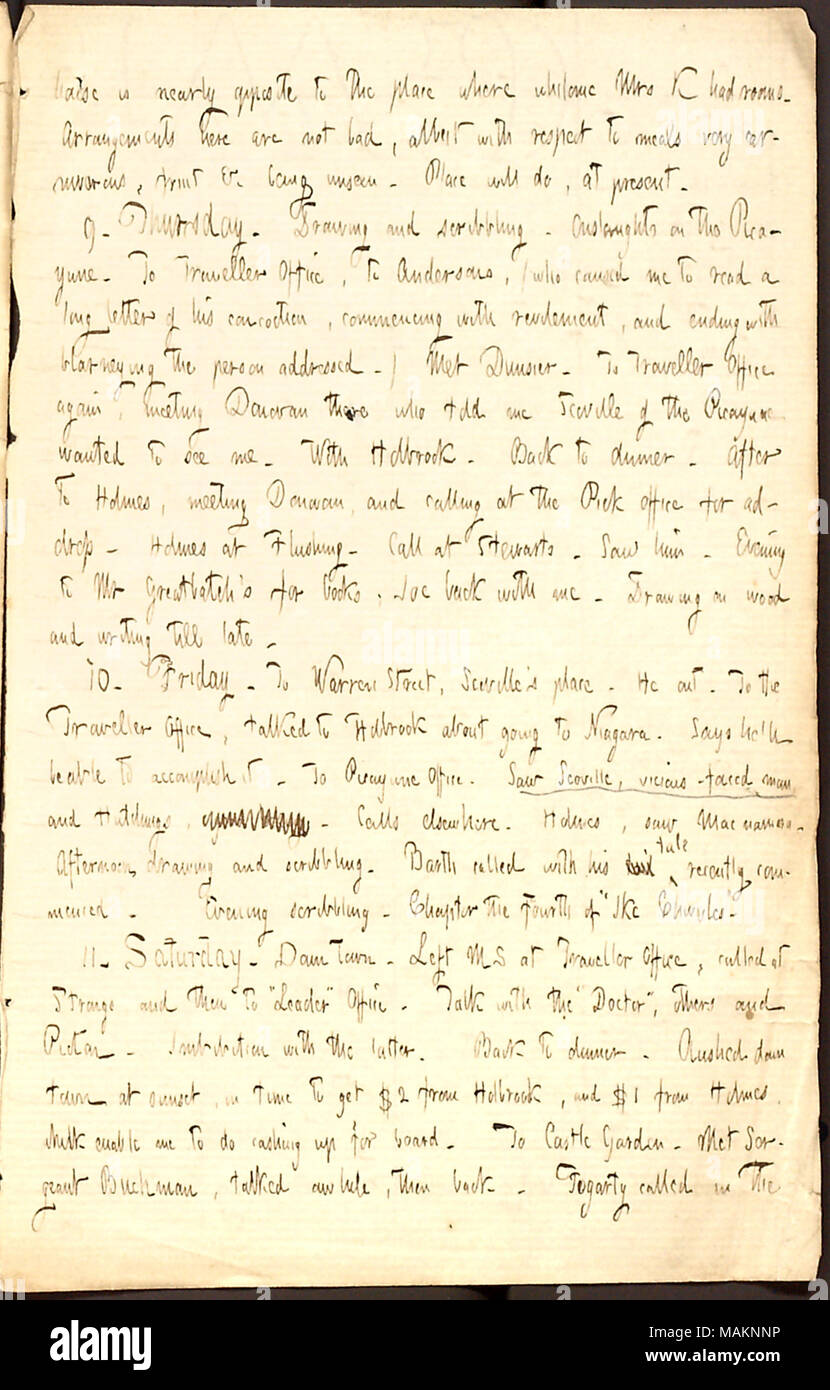 house is nearly opposite to the place where whilome Mrs K had rooms.
Arrangements here are not bad, albeit with respect to meals very car-
nivorous, fruit &c being unseen. Place will do, at present.
9. Thursday. Drawing and scribbling. Onslaughts on the Pica-
yune. To Traveller Office, to Andersons, (who caused me to read a
long letter of his concoction, commencing with revilement, and ending with
blarneying the person addressed.) Met Dunsier. To Traveller Office
again, meeting Donovan there who told me Scoville of the Picayune
wanted to see me. With Holbrook. Back to dinner. After
to Holmes, meeting Donovan, and calling at the Pick office for ad-
drop. Holmes at Flushing. Call at Stewarts. Saw him. Evening
to Mr Greatbatch's for books; Joe back with me. Drawing on wood
and writing till late.
10. Friday. To Warren Street, Scoville's place. He out. To the
Traveller Office, talked to Holbrook about going to Niagara. Says he'll
be able to accomplish it. To Picayune Office. Saw Scoville, vicious-faced man,
and Hutchings. Calls elsewhere. Holmes, saw Macnamara.
Afternoon, drawing and scribbling. Barth called with his tale recently com-
menced. Evening scribbling. Chapter the Fourth of "Ike
11. Saturday. Down town. Left MS at Traveller Office, called at
Strongs and then to "Leader" Office. Talk with the "Doctor", others and
Picton. Imbibition with the latter. Back to dinner. Rushed down
town at sunset, in time to get $2 from Holbrook, and $1 from Holmes,
which enable me to do cashing up for board. To Castle Garden. Met Ser-
geant Buchman, talked awhile, then back. Fogarty called in the
alamy
Image ID: MAKNNP
www.alamy.com